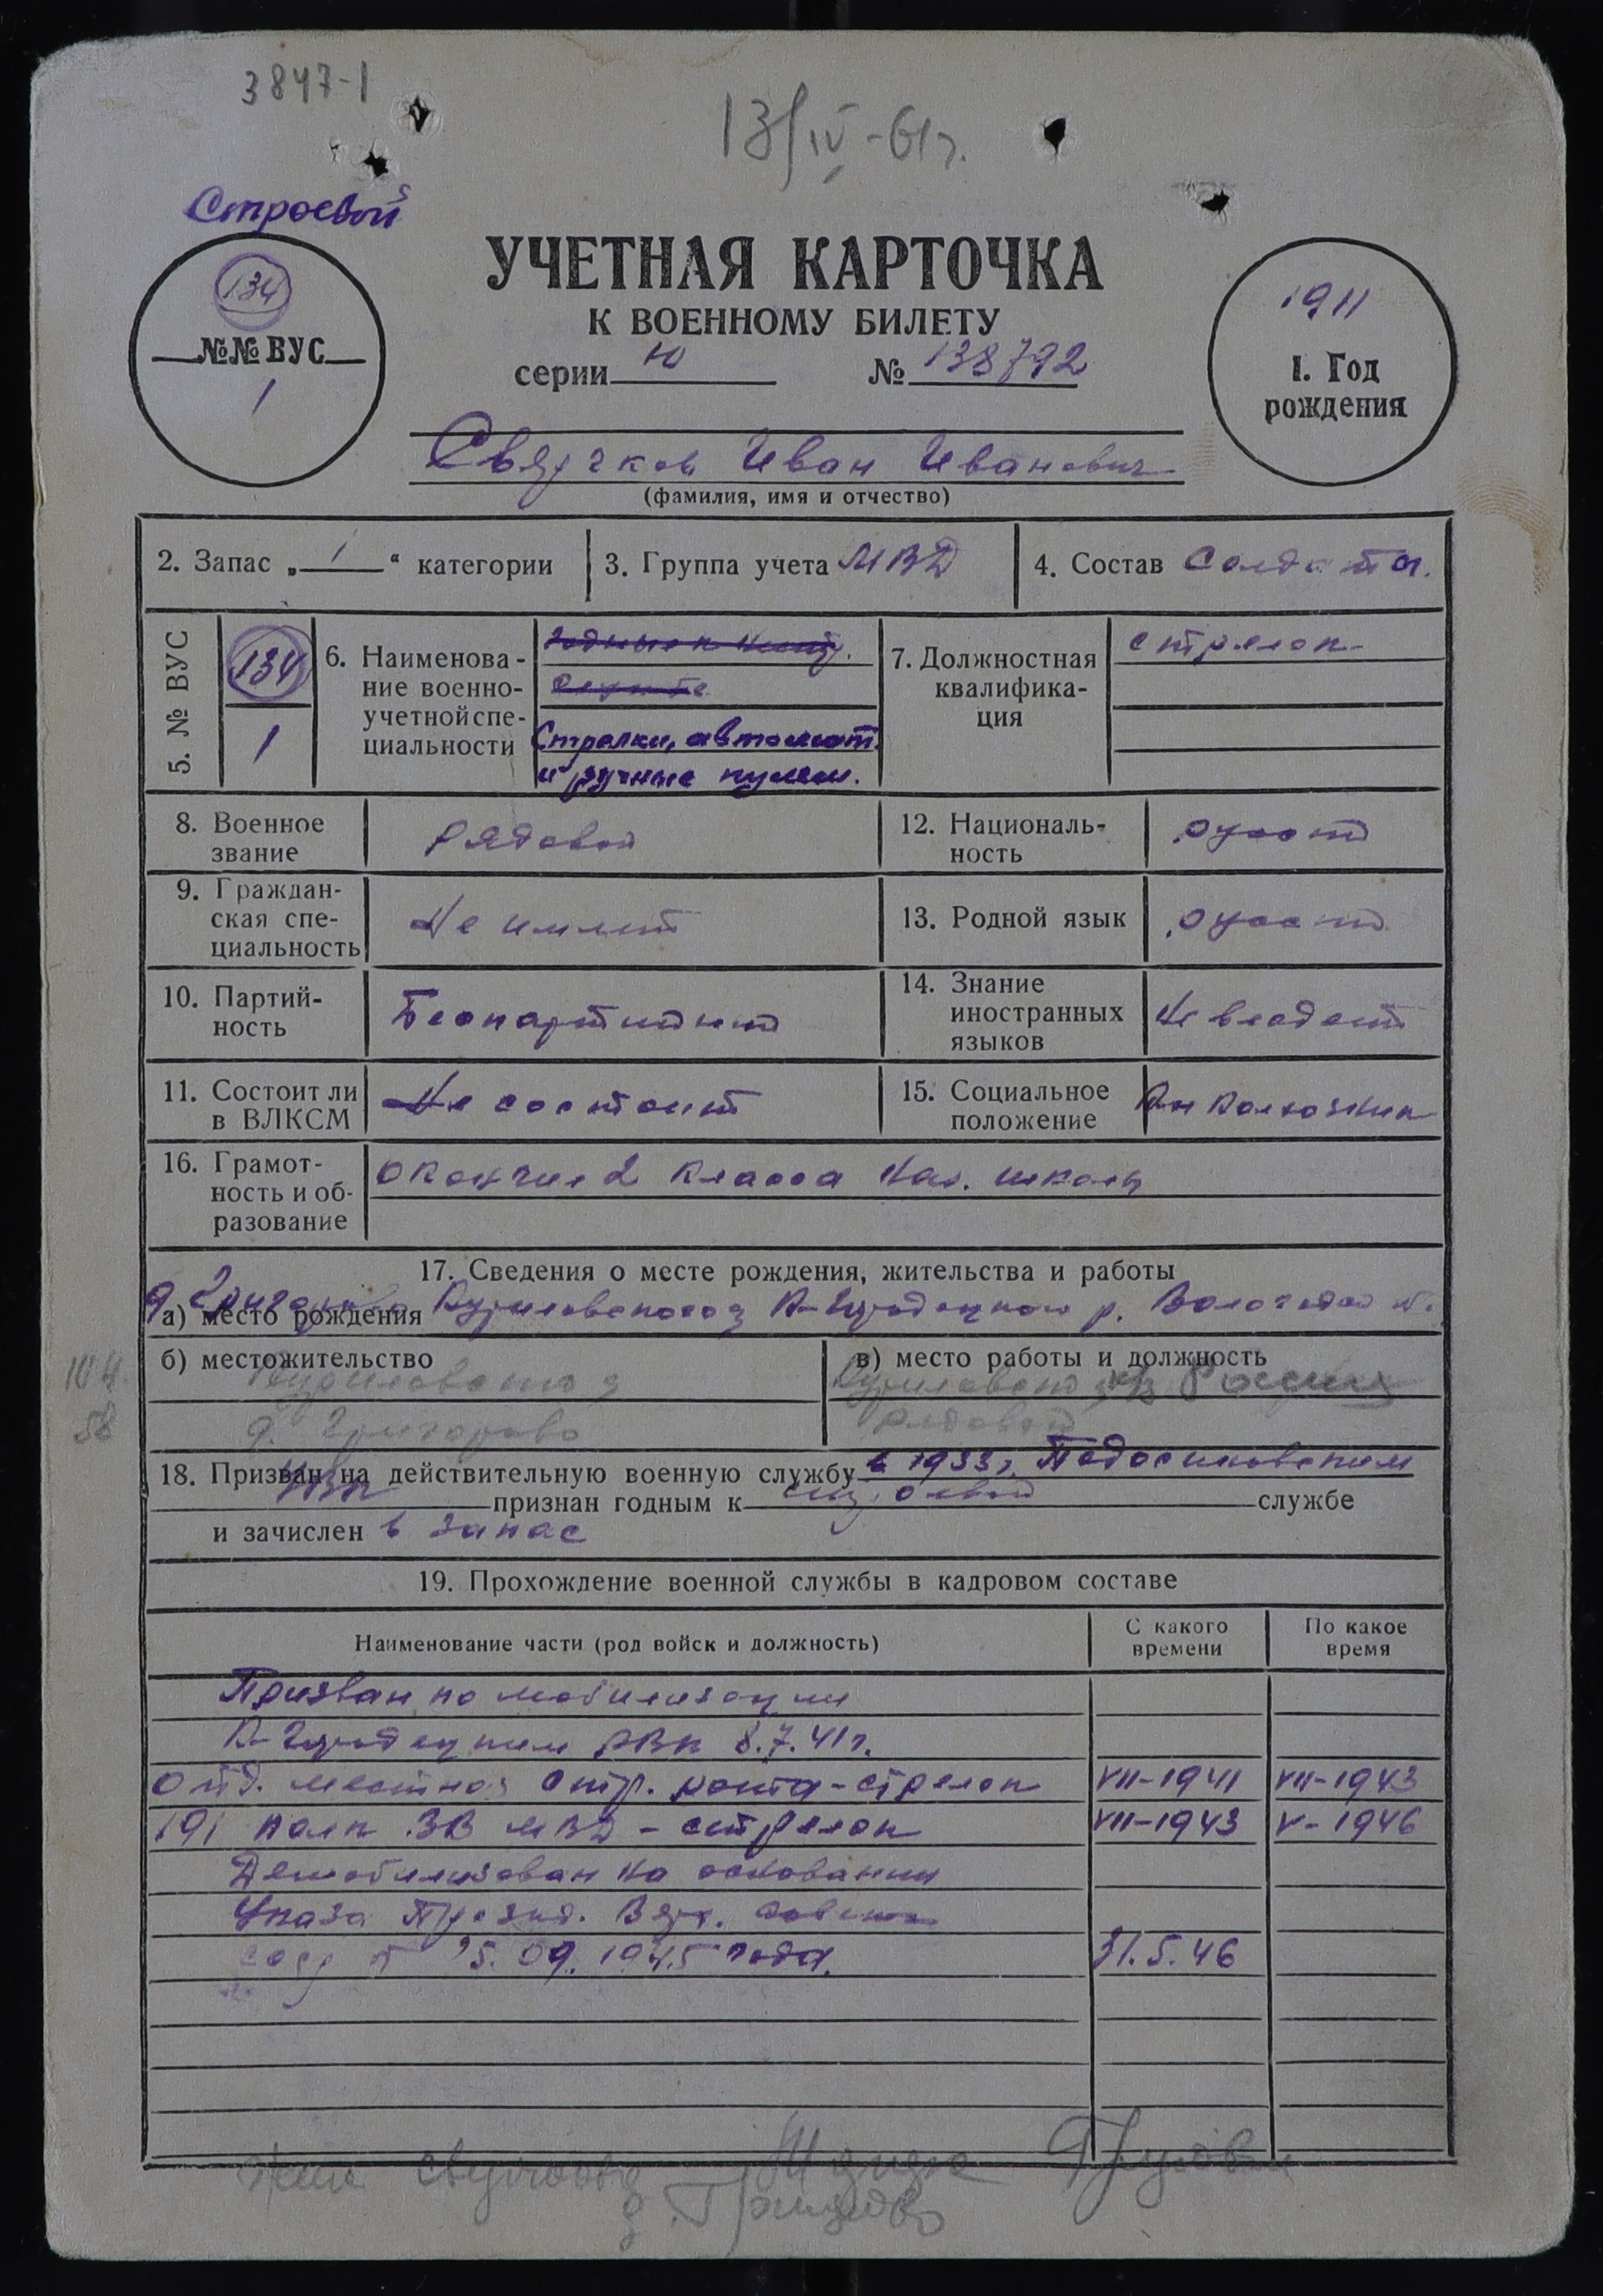 3847-1
13/IV-61г.
Строевой
134
№№ ВУС
1
УЧЕТНАЯ КАРТОЧКА
К ВОЕННОМУ БИЛЕТУ
серии Ю № 138792
1911
1. Год
рождения
Иван Иванович
(фамилия, имя и отчество)
2. Запас „ 1 “ категории
3. Группа учета МВД
4. Состав Солдаты
5. № ВУС
134
1
6. Наименова-
ние военно-
учетной спе-
циальности
Стрелки, автомат.
и ручные пулем.
7. Должностная
квалифика-
ция
стрелок
8. Военное
звание
рядовой
12. Националь-
ность
русск
9. Граждан-
ская спе-
циальность
Не имеет
13. Родной язык
русск
10. Партий-
ность
Беспартийный
14. Знание
иностранных
языков
Не владеет
11. Состоит ли
в ВЛКСМ
Не состоит
15. Социальное
положение
Колхозник
16. Грамот-
ность и об-
разование
окончил 2 класса нач. школы
17. Сведения о месте рождения, жительства и работы
а) место рождения
Куриловского К-Городецкого р. Вологодской
б) местожительство
в) место работы и должность
д. Григорово
рядовой
18. Призван на действительную военную службу в 1933г. Подосиновским
РВК признан годным к строевой службе
и зачислен в запас
19. Прохождение военной службы в кадровом составе
Наименование части (род войск и должность)
С какого
времени
По какое
время
Призван по мобилизации
К-Городецким РВК 8.7.41г.
отд. местная стр. рота - стрелок VII-1941 VII-1943
191 полк ВВ МВД - стрелок VII-1943 V-1946
Демобилизован на основании
Указа Презид. Верх. Совета
25.09.1945 года. 31.5.46